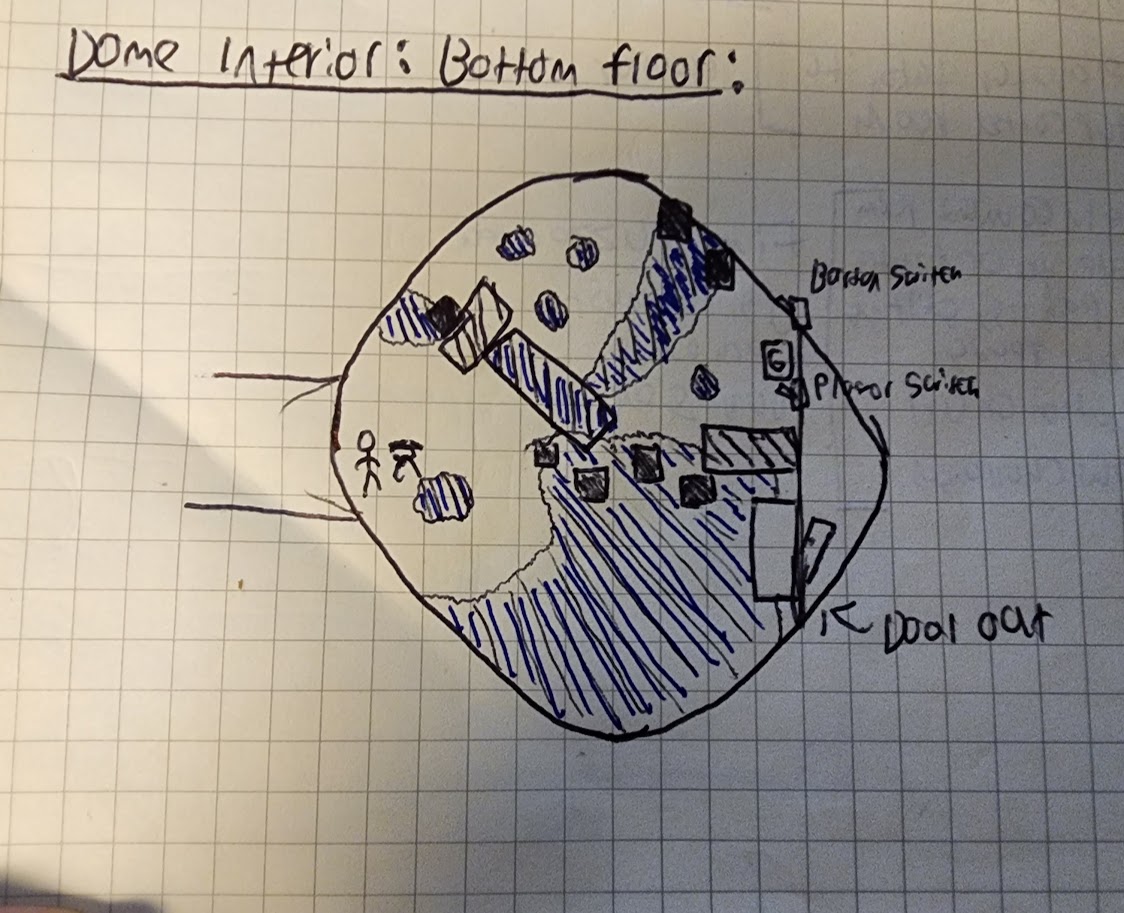 Dome Interior: Bottom floor:
Botton Switch
G
Switch
Door out